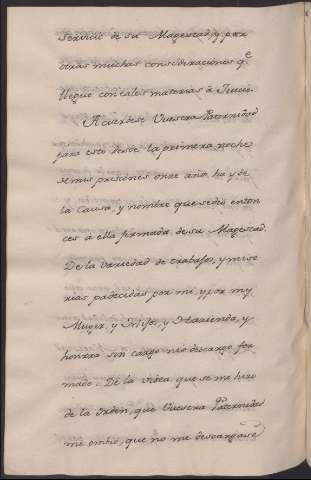 servicio de su Magestad, y por
otras muchas consideraciones qe
llegue con tales materias a Juicio.
Acuerdese Vuesera Paternidad
para esto desde la primera noche
de mis prisiones onze años ha, y de
la causa, y nombre que se dio enton
ces a ella firmada de su Magestad.
De la variedad de trabajos, y mise
rias padecidas por mi, y por my
Muger, y Hijos, y Hazienda, y
honrra sin cargo ni descargo for
mado. De la vista que se me hizo
de la orden, que Vuesera Paternidad
me embio, que no me descargase